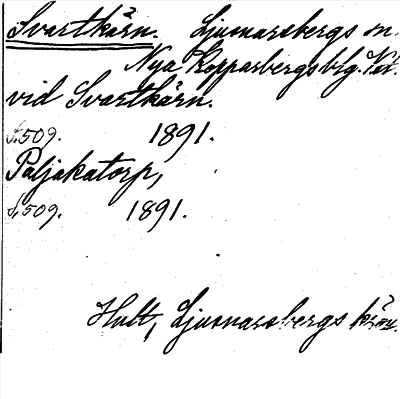 Svartkärn. Ljusnarsbergs sn.
Nya Kopparbergs brg. Väst.
vid Svartkärn.
s. 509. 1891.
Paljakatorp,
s. 509. 1891.
Hult, Ljusnarsbergs krön.